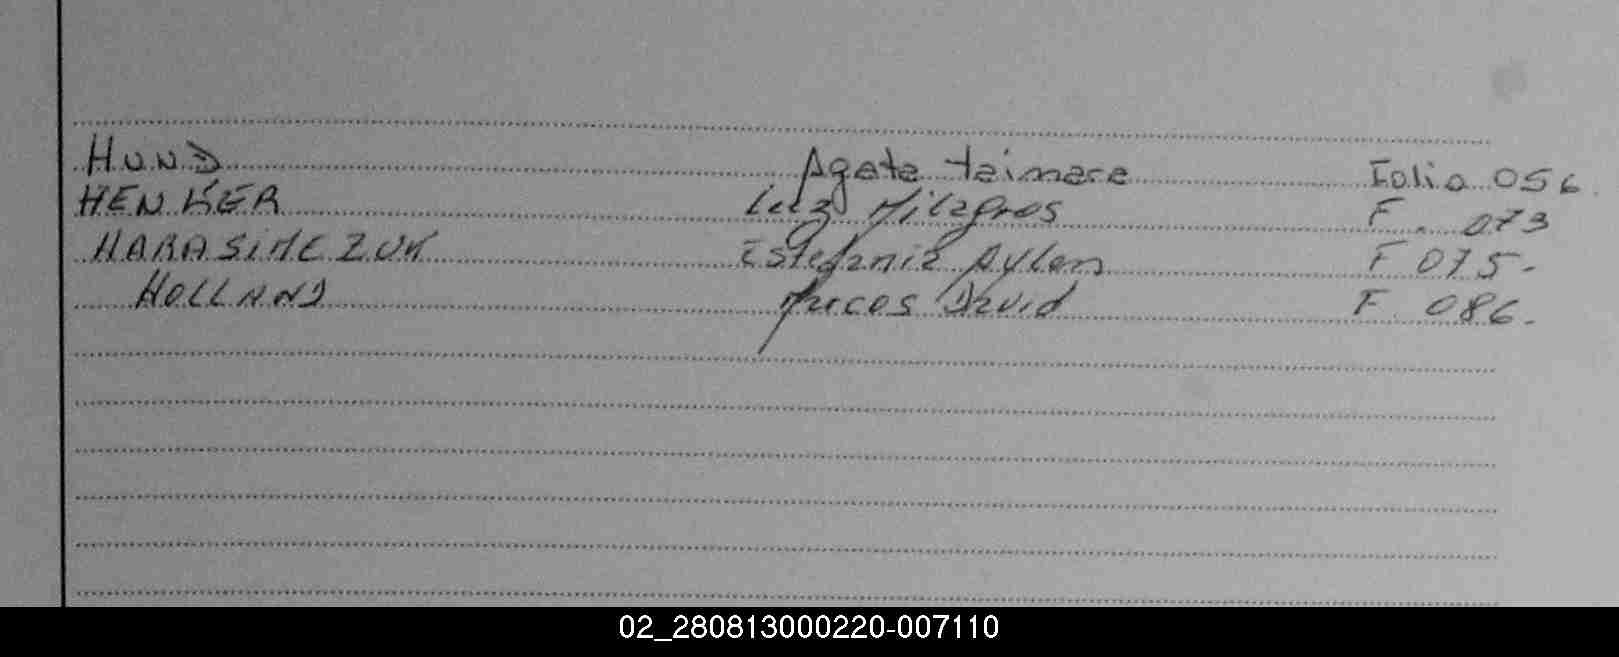 HUND Agata taimara Folio 056
HENKER Luz Milagros F. 073
HARASIMEZUK Estefania Aylen F 075-
HOLLAND Marcos David F. 086.
02_280813000220-007110